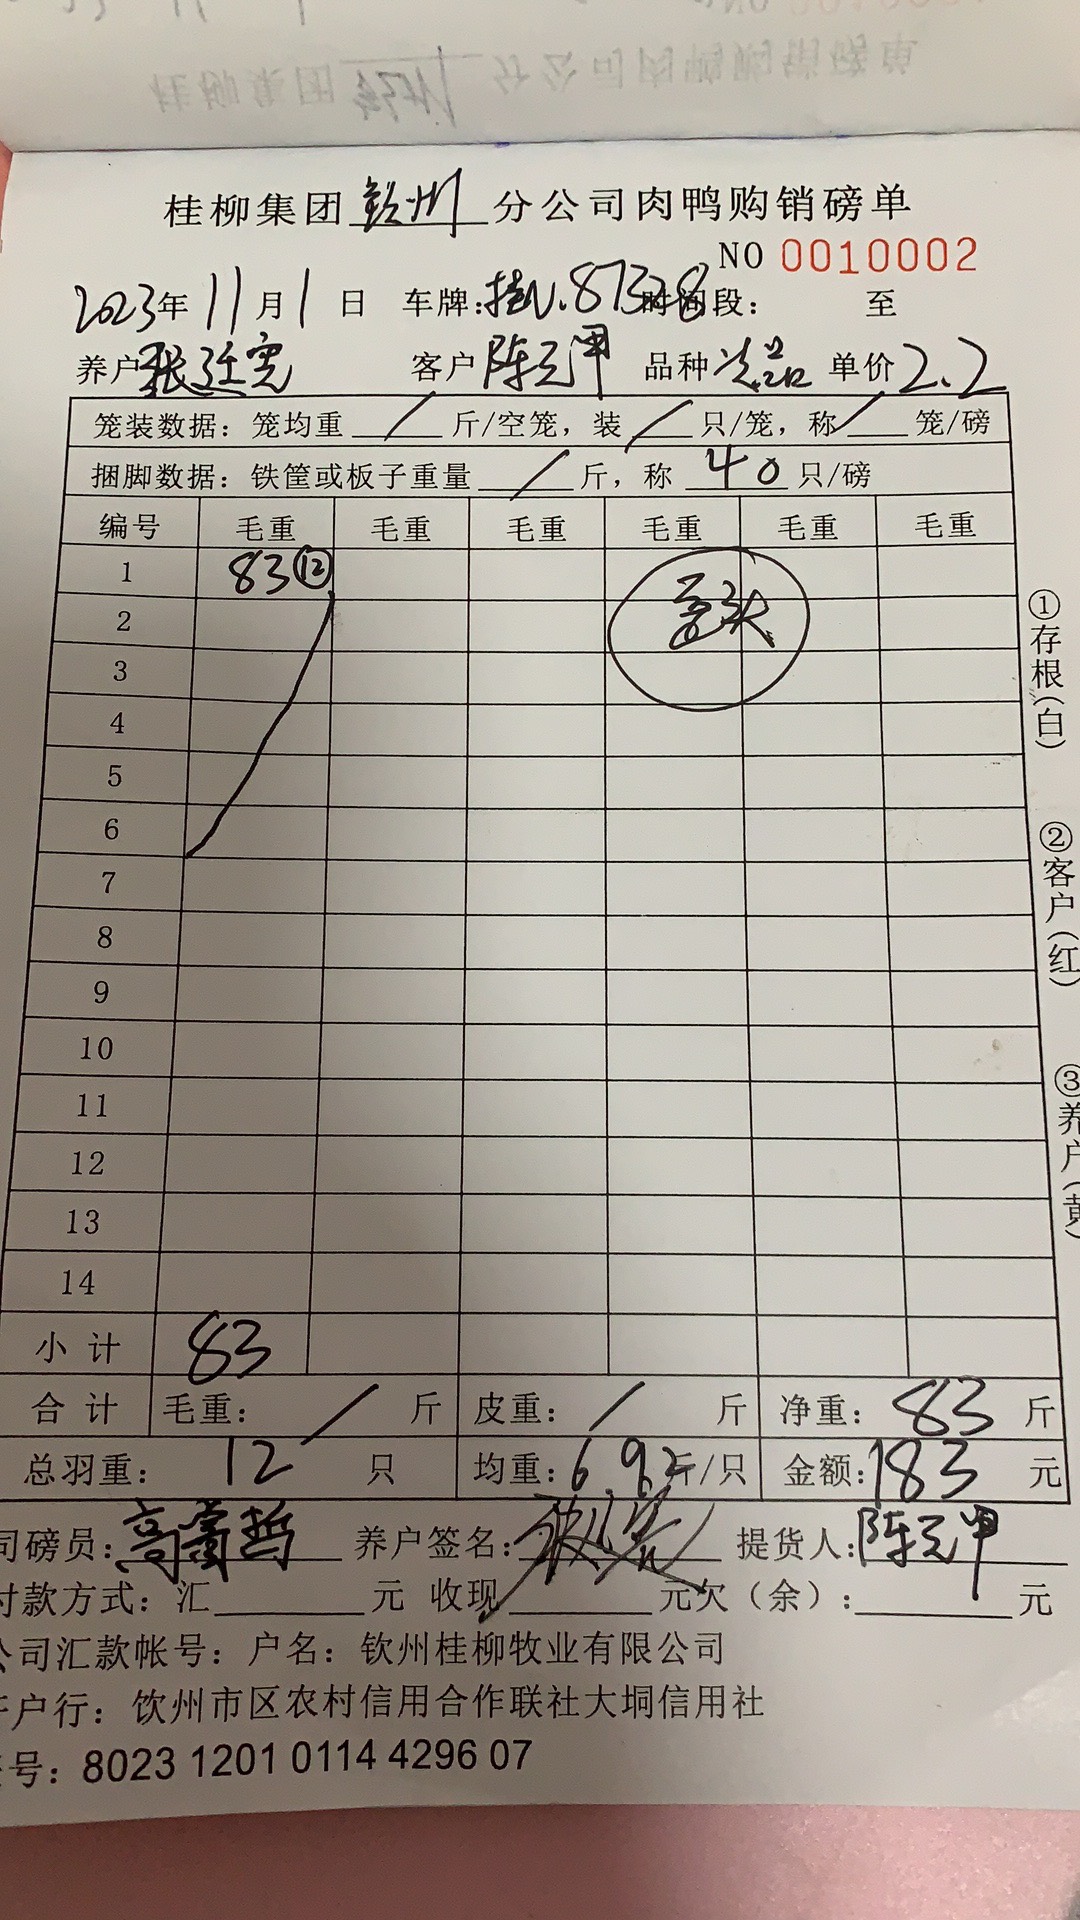 桂柳集团钦州分公司肉鸭购销磅单
NO 0010002
2023年11月1日 车牌:桂N.87328 时间段: 至
养户 张廷宪 客户 陈元甲 品种 次品 单价 2.2
笼装数据: 笼均重 / 斤/空笼, 装 / 只/笼, 称 / 笼/磅
捆脚数据: 铁筐或板子重量 / 斤, 称 40 只/磅
编号 毛重 毛重 毛重 毛重 毛重 毛重
1 83 ⑫
2
3
4
5
6
7
8
9
10
11
12
13
14
小计 83
合计 毛重: / 斤 皮重: / 斤 净重: 83 斤
总羽重: 12 只 均重: 6.92斤/只 金额: 183 元
司磅员: 养户签名: 提货人: 陈元甲
付款方式: 汇 元 收现 元欠(余): 元
公司汇款帐号: 户名: 钦州桂柳牧业有限公司
开户行: 饮州市区农村信用合作联社大垌信用社
号: 8023 1201 0114 4296 07
①存根(白)
②客户(红)
③养户(黄)